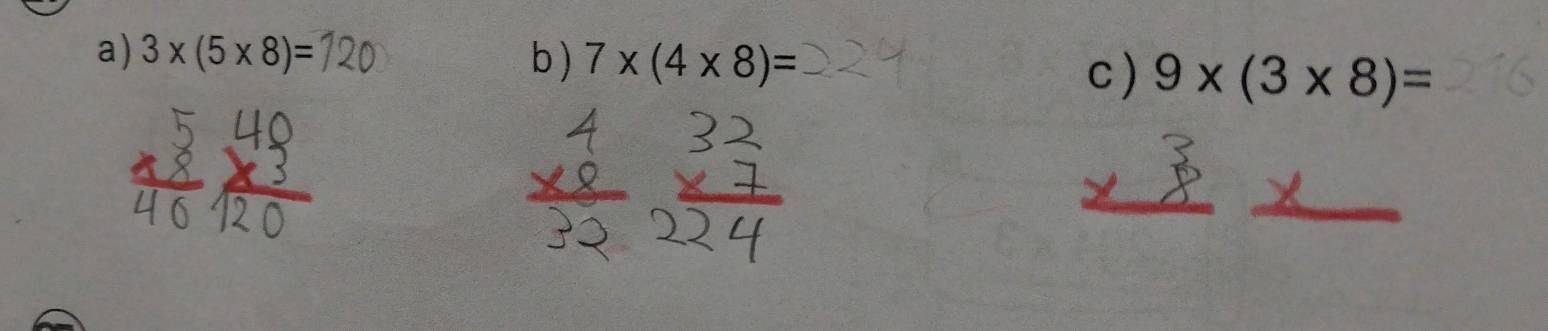 a) 3 x (5 x 8)= 120
5
x 8
40
40
x 3
120
b) 7 x (4 x 8)= 224
4
x 8
32
32
x 7
224
c) 9 x (3 x 8)= 216
3
x 8
x